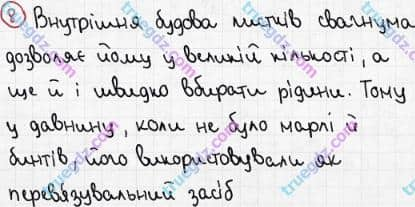 8) Внутрішня будова листків сфагнума
дозволяє йому у великій кількості, а
ще й і швидко вбирати рідини. Тому
у давнину, коли не було марлі й
бинтів, його використовували як
перев'язувальний засіб
truegdz.com